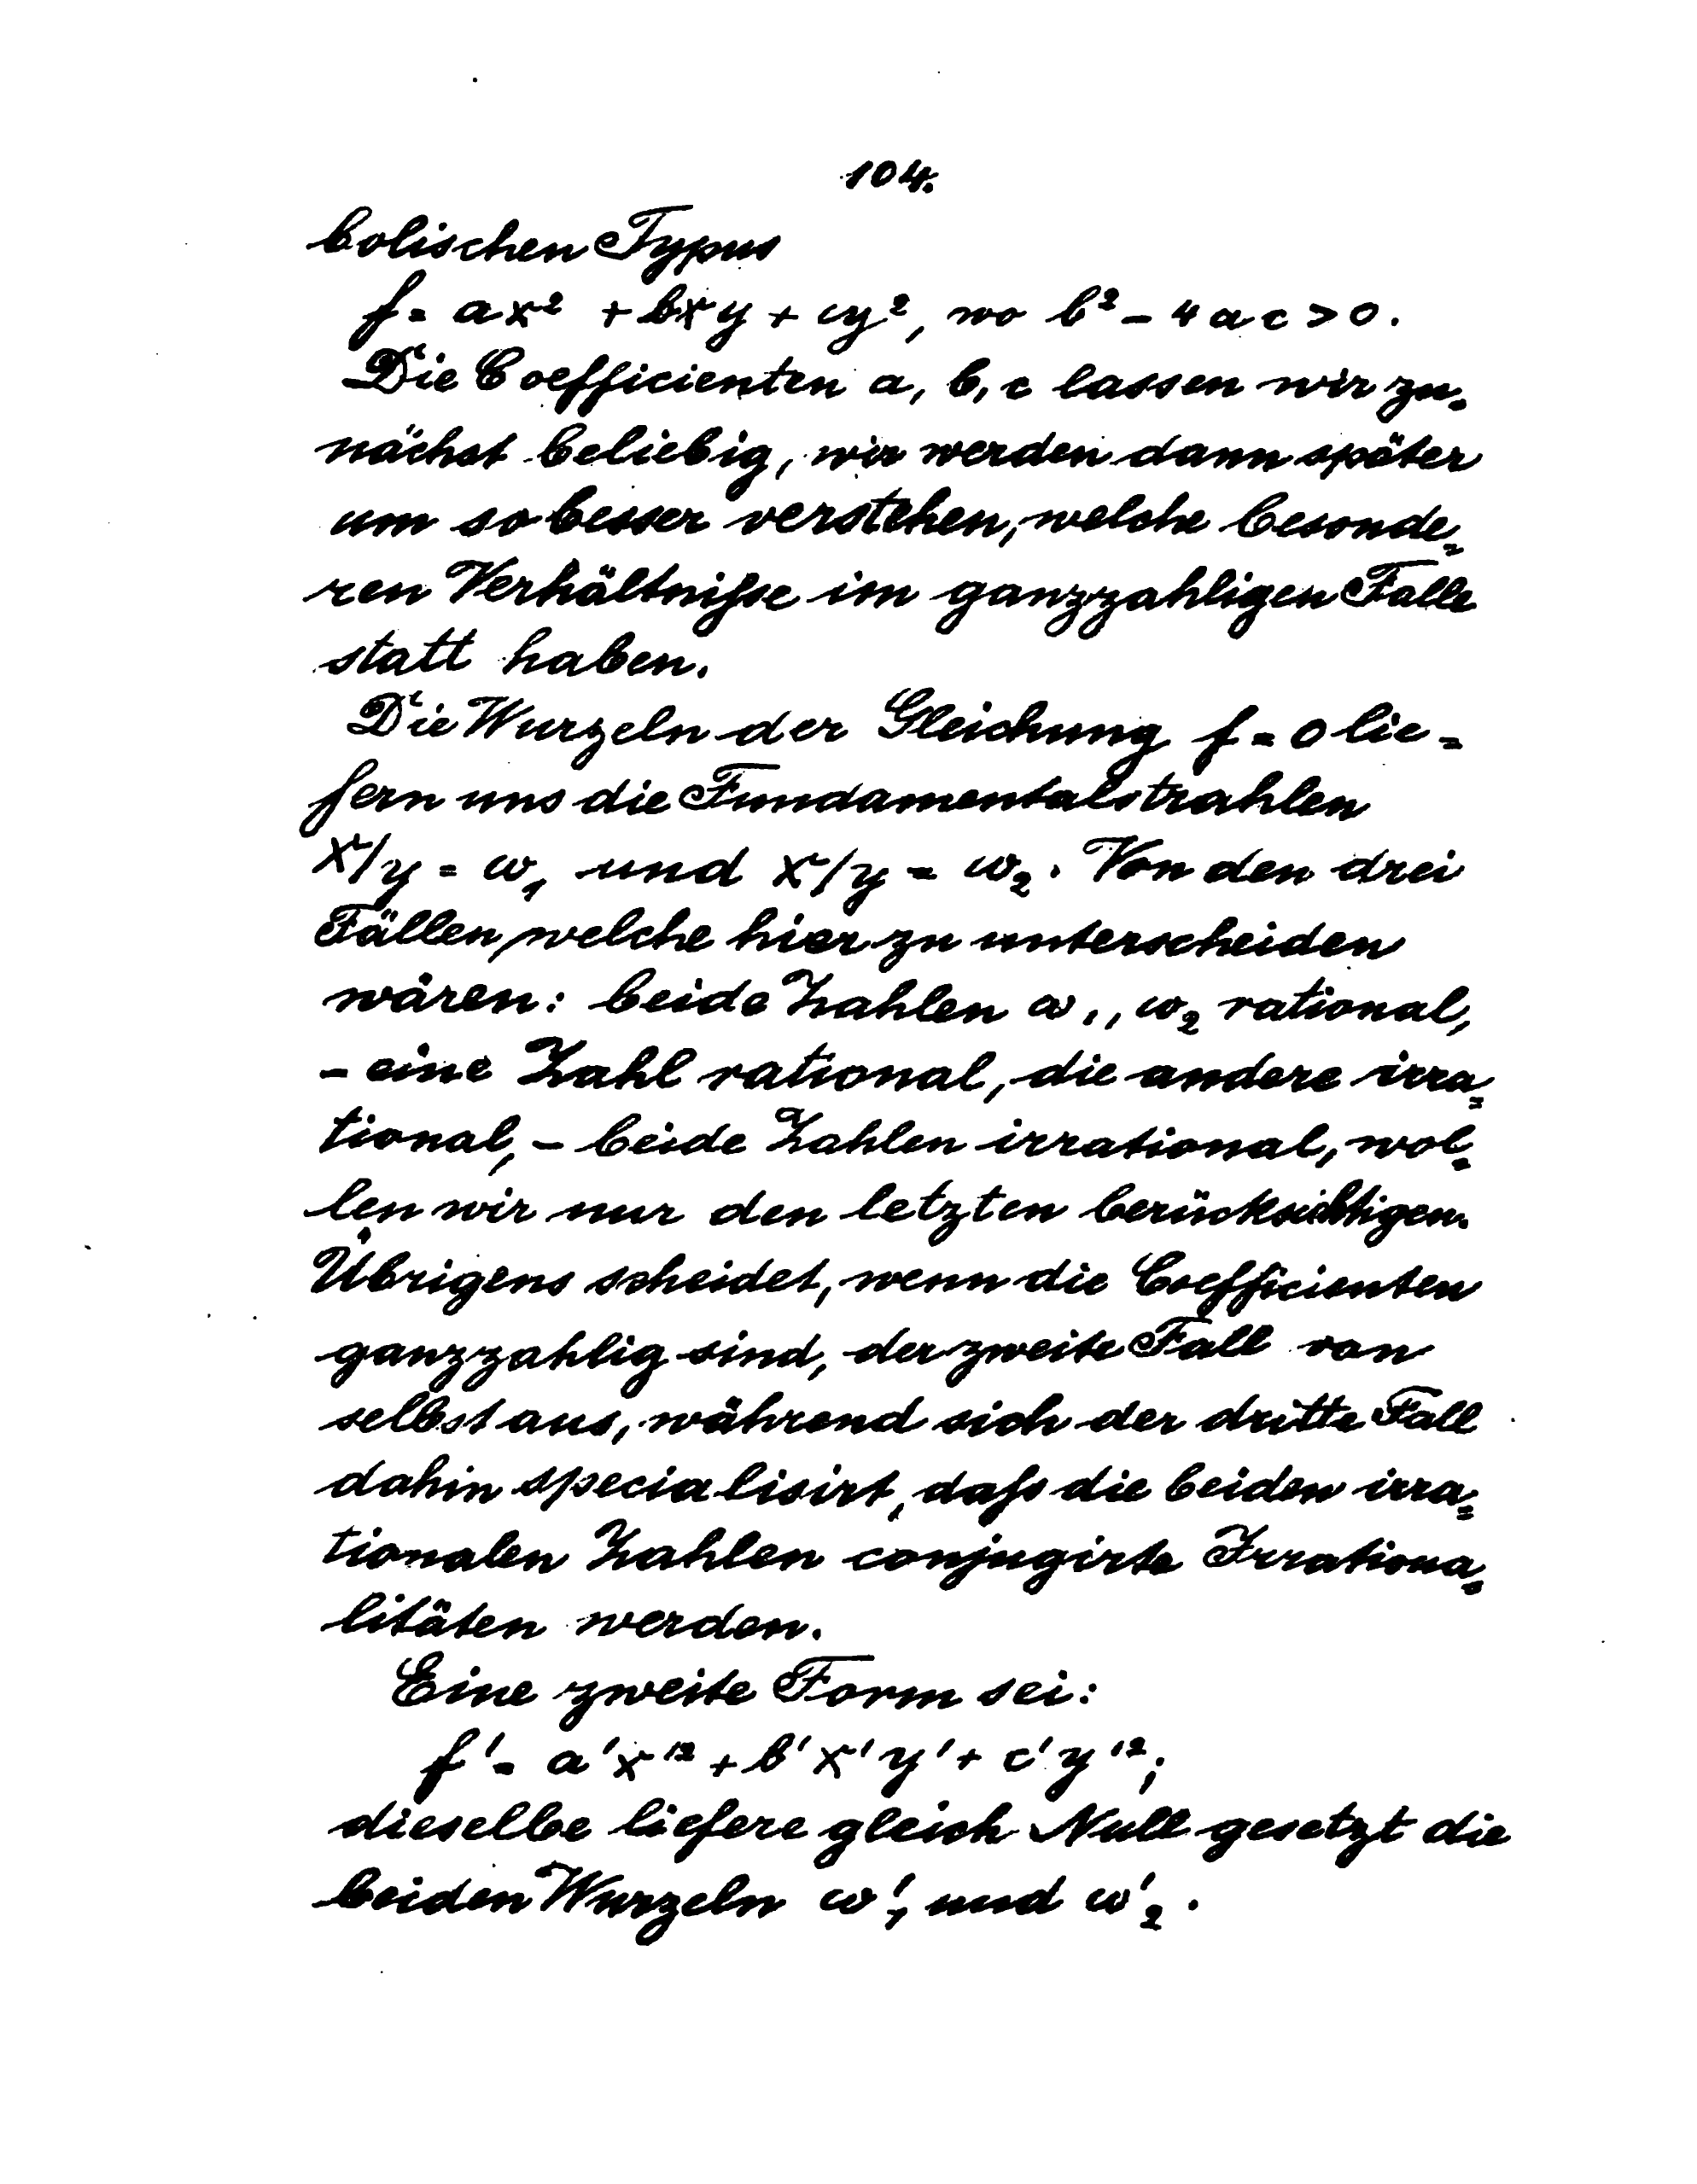 104.
bolischen Typus
f = ax² + bxy + cy², wo b² - 4ac > 0.
Die Coefficienten a, b, c lassen wir zu=
nächst beliebig, wir werden dann später
um so besser verstehen, welche besonde=
ren Verhältniſse im ganzzahligen Falle
statt haben.
Die Wurzeln der Gleichung f = 0 lie=
fern uns die Fundamentalstrahlen
x/y = ω₁ und x/y = ω₂. Von den drei
Fällen, welche hier zu unterscheiden
wären: beide Zahlen ω₁, ω₂ rational,
- eine Zahl rational, die andere irra=
tional, - beide Zahlen irrational, wol=
len wir nur den letzten berücksichtigen.
Übrigens scheidet, wenn die Coefficienten
ganzzahlig sind, der zweite Fall von
selbst aus, während sich der dritte Fall
dahin specialisirt, daſs die beiden irra=
tionalen Zahlen conjugirte Irrationa=
litäten werden.
Eine zweite Form sei:
f' = a'x'² + b'x'y' + c'y'²;
dieselbe liefere gleich Null gesetzt die
beiden Wurzeln ω'₁ und ω'₂.